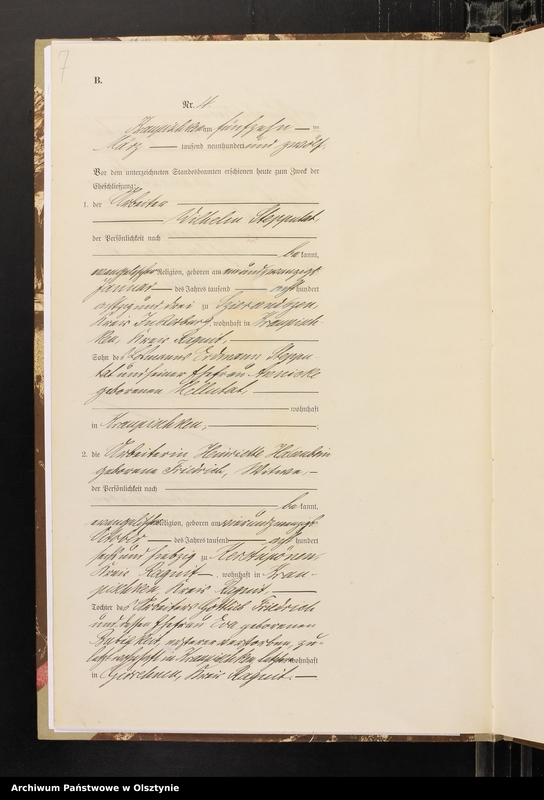 7
B.
Nr. 4.
Kraupischken am fünfzehn ten
März tausend neunhundert und zwölf.
Vor dem unterzeichneten Standesbeamten erschienen heute zum Zweck der
Eheschließung:
1. der Arbeiter
Wilhelm Stepputat,
der Persönlichkeit nach
bekannt,
evangelischer Religion, geboren am
Januar des Jahres tausend acht hundert
achtzig und drei zu
Kreis Insterburg, wohnhaft in Kraupisch-
ken, Kreis Ragnit,
Sohn des Losmanns Erdmann Steppu-
tat und seiner Ehefrau
geborenen
wohnhaft
in Kraupischken,
2. die Arbeiterin Henriette
geborene Friedrich, Witwe,
der Persönlichkeit nach
bekannt,
evangelischer Religion, geboren am vierundzwanzigsten
Oktober des Jahres tausend acht hundert
sechs und siebzig zu
Kreis Ragnit, wohnhaft in Krau-
pischken, Kreis Ragnit,
Tochter des Arbeiters Gottlieb Friedrich
und dessen Ehefrau Eva geborenen
ersterer verstorben, zu-
letzt wohnhaft in Kraupischken, letztere wohnhaft
in Kreis Ragnit.
Archiwum Państwowe w Olsztynie